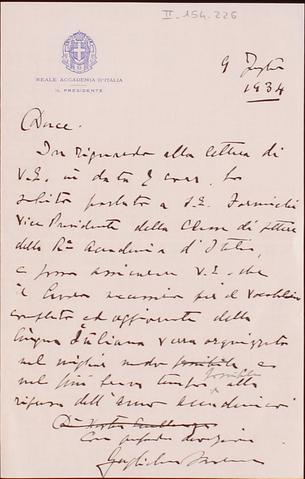 II-154.226
REALE ACCADEMIA D'ITALIA
IL PRESIDENTE
9 Luglio
1934
Duce.
In riguardo alla lettera di
V.E. in data 7 corr. ho
subito parlato a S.E. Formichi
Vice Presidente della Classe di lettere
della Rle Accademia d'Italia,
e posso assicurare V.E. che
il lavoro necessario per il vocabolario
completo ed aggiornato della
lingua Italiana verrà organizzato
nel miglior modo possibile e
nel più breve tempo possibile alla
ripresa dell'anno accademico
Con profonda devozione
Guglielmo Marconi